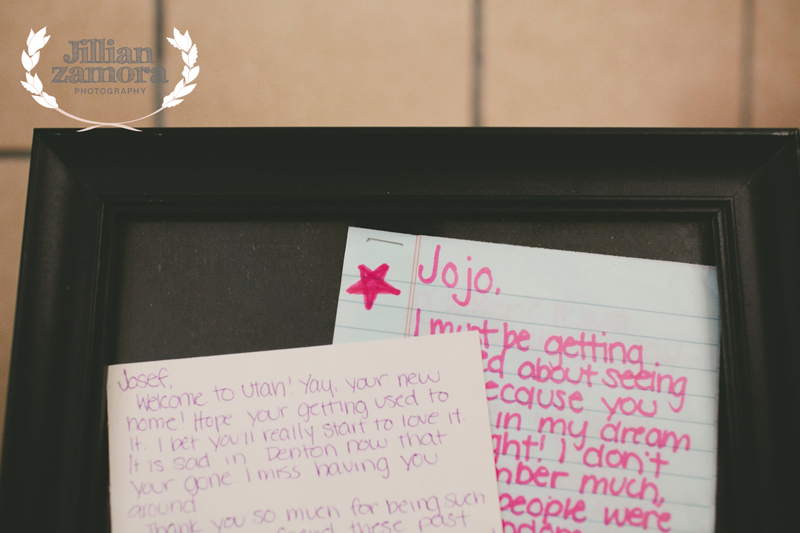 Jillian
zamora
PHOTOGRAPHY
Jojo,
I must be getting
about seeing
because you
in my dream
I don't
much,
people were
Josef,
Welcome to Utah! Yay, your new
home! Hope your getting used to
it. I bet you'll really start to love it.
It is sad in Denton now that
your gone I miss having you
around
Thank you so much for being such
these past